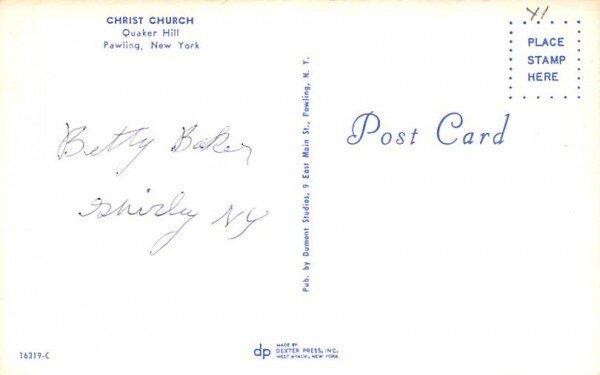 CHRIST CHURCH
Quaker Hill
Pawling, New York
Y1
PLACE
STAMP
HERE
Post Card
Betty Baker
Shirley NY
Pub. by Dumont Studios, 9 East Main St., Pawling, N. Y.
16319-C
dp
MADE BY
DEXTER PRESS, INC.
WEST NYACK, NEW YORK